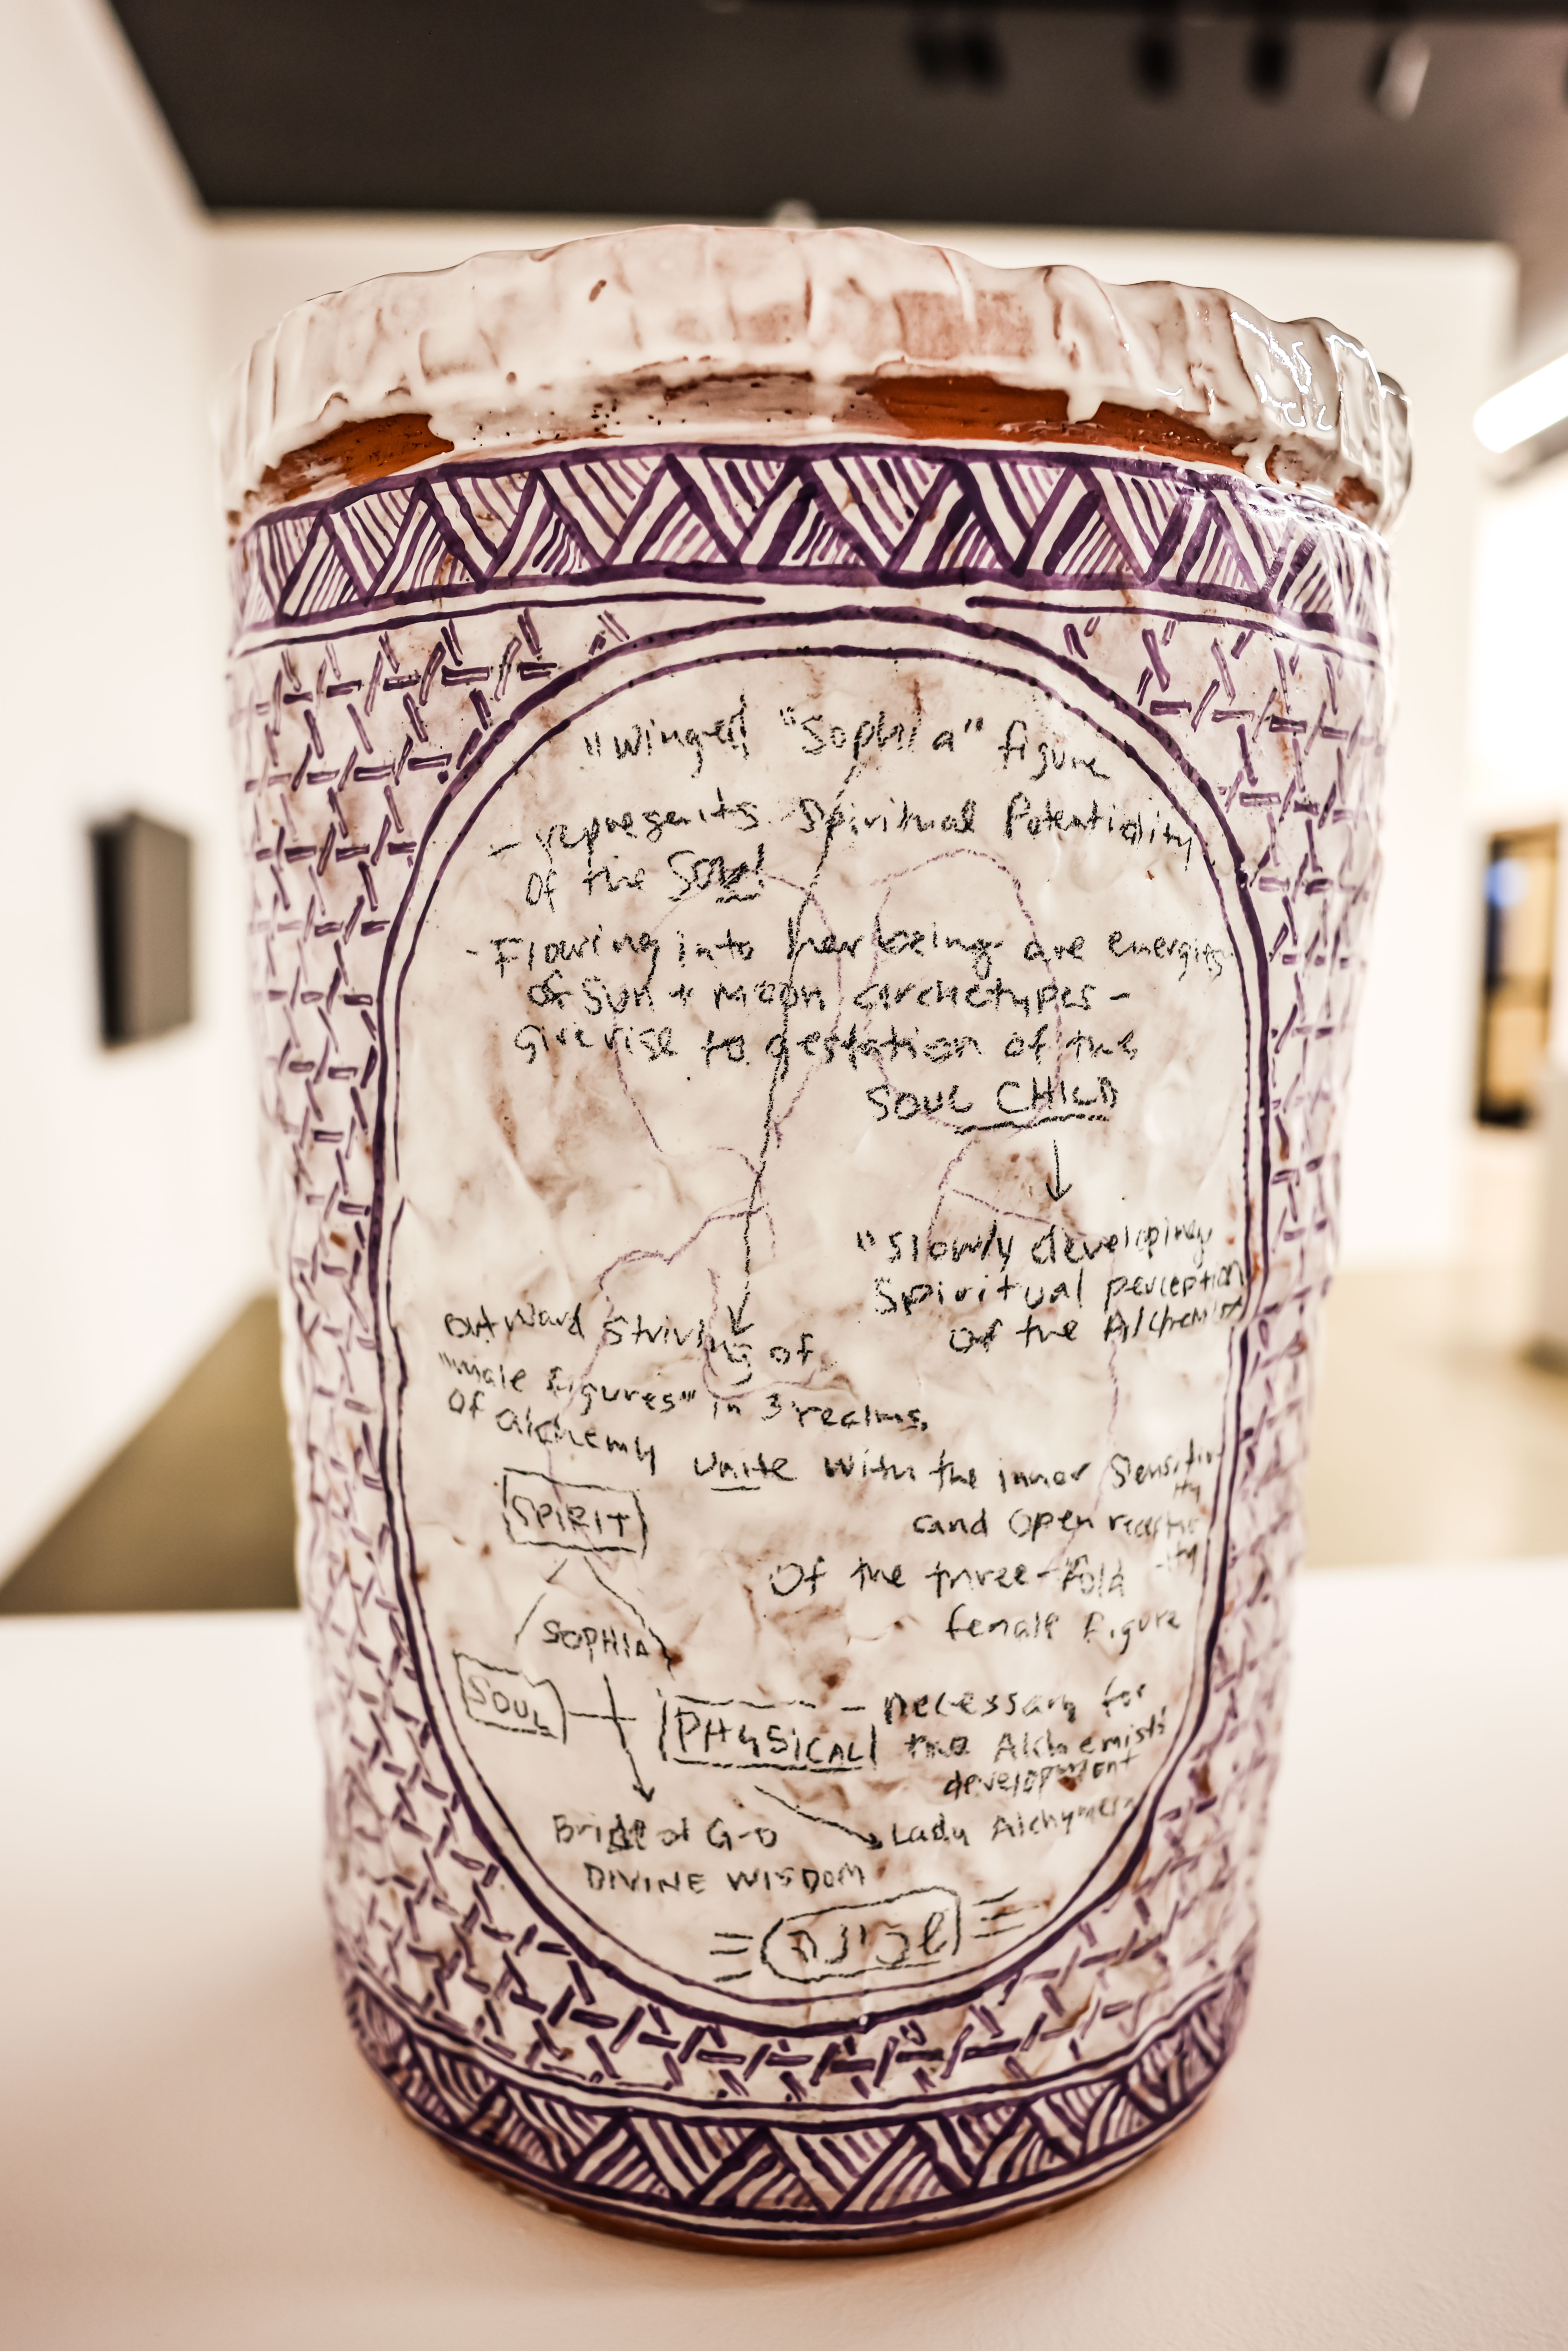 "Winged "Sophia" figure
- represents Spiritual Potentiality
of the Soul
- Flowing into her being are energies
of Sun + Moon archetypes -
give rise to gestation of the
SOUL CHILD
"Slowly developing
Spiritual perception
of the Alchemist
outward striving of
"male figures" in 3 realms
of alchemy unite with the inner Sensitiv
ity
and open receptiv
-ity
Of the three-fold
female figure
SPIRIT
SOPHIA
SOUL
PHYSICAL - necessary for
the Alchemists'
development
Bride of G-D
Lady Alchymera
DIVINE WISDOM